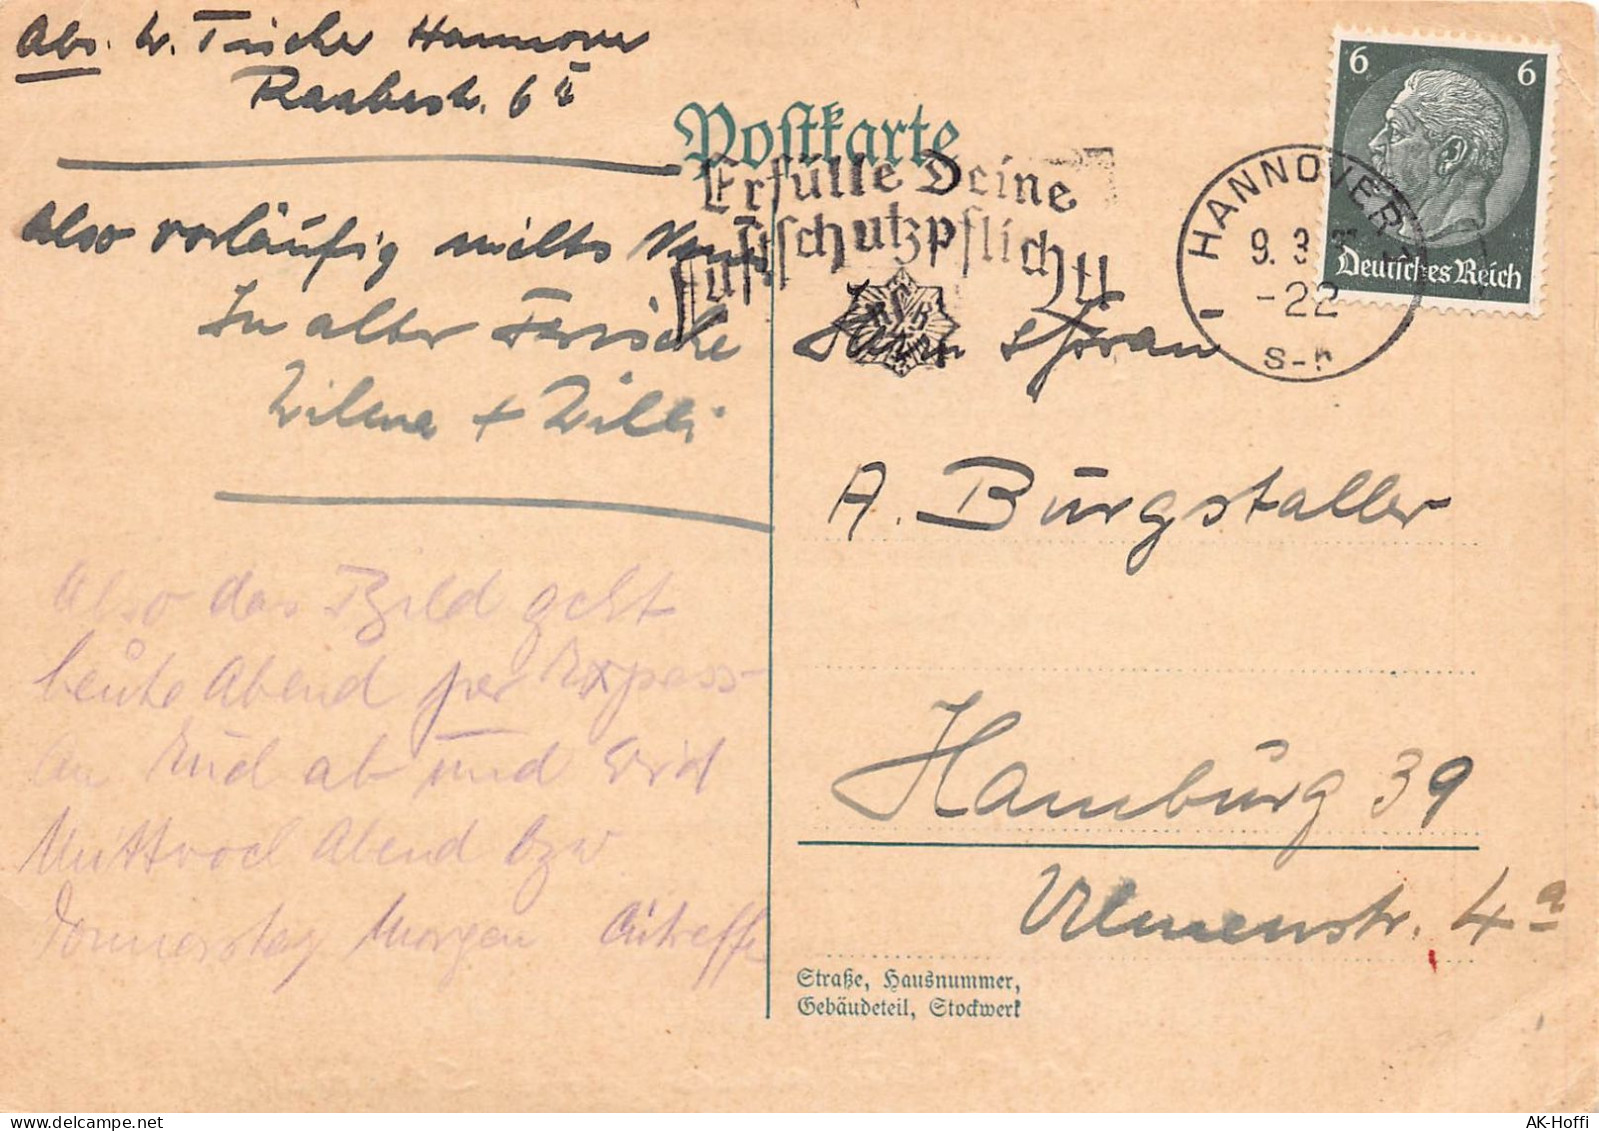 Abs. W. Tischer Hannover
Raabestr. 6 II
Postkarte
Erfülle Deine
Luftschutzpflicht!
HANNOVER
9. 3.
-22
S-h
6 6
Deutsches Reich
Also vorläufig
In alter Frische
Wilma + Willi
Herrn & Frau
A. Burgstaller
Hamburg 39
Ulmenstr. 4a
Also das Bild geht
heute Abend per Express-
ab und wird
Mittwoch Abend bzw
Donnerstag Morgen
Straße, Hausnummer,
Gebäudeteil, Stockwerk
AK-Hoffi